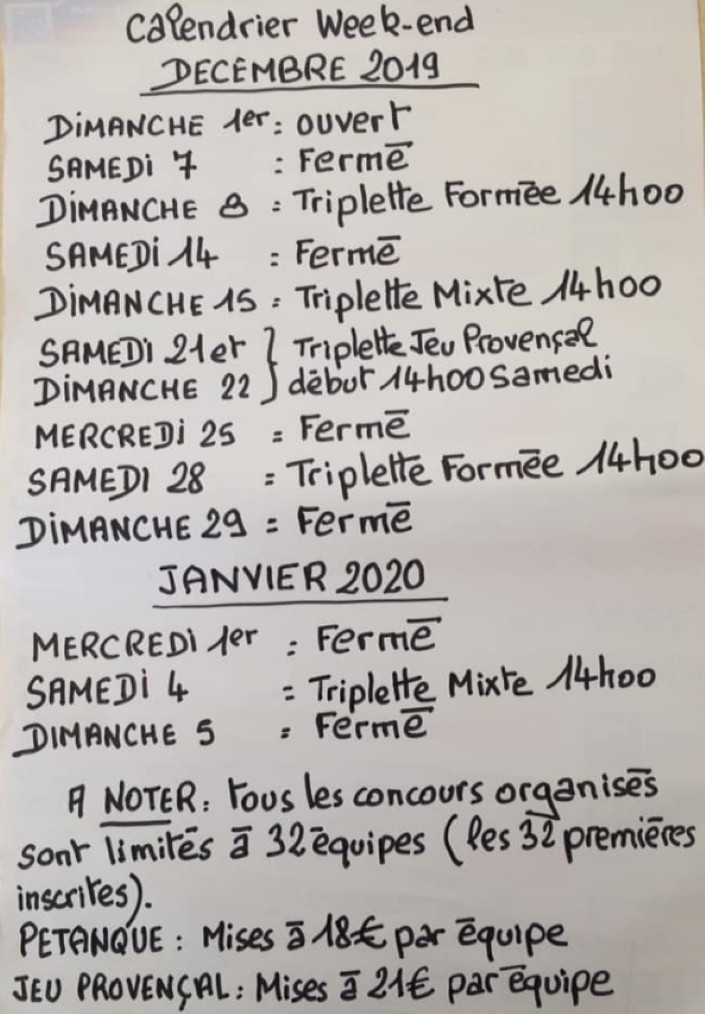 Calendrier Week-end
DECEMBRE 2019
DIMANCHE 1er : ouvert
SAMEDI 7 : Fermé
DIMANCHE 8 : Triplette Formée 14h00
SAMEDI 14 : Fermé
DIMANCHE 15 : Triplette Mixte 14h00
SAMEDI 21 et } Triplette Jeu Provençal
DIMANCHE 22 } début 14h00 Samedi
MERCREDI 25 = Fermé
SAMEDI 28 : Triplette Formée 14h00
DIMANCHE 29 = Fermé
JANVIER 2020
MERCREDI 1er : Fermé
SAMEDI 4 = Triplette Mixte 14h00
DIMANCHE 5 : Fermé
A NOTER : tous les concours organisés
sont limités à 32 équipes (les 32 premières
inscrites).
PETANQUE : Mises à 18€ par équipe
JEU PROVENÇAL : Mises à 21€ par équipe